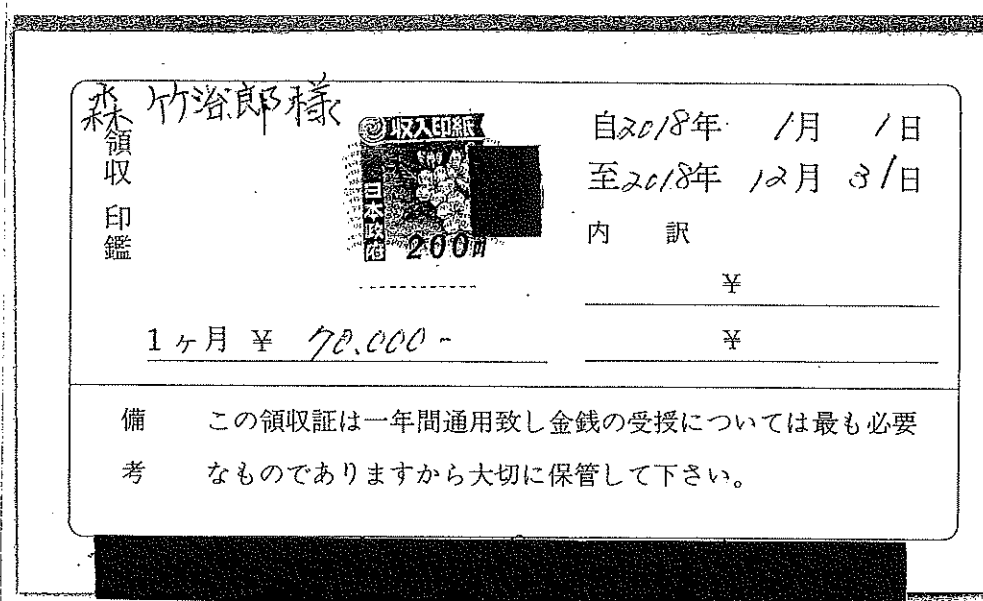 森 竹治郎様
領収印鑑
収入印紙
日本政府
200円
自2018年 1月 1日
至2018年 12月 31日
内 訳
¥
1ヶ月 ¥ 70.000-
¥
備 この領収証は一年間通用致し金銭の受授については最も必要
考 なものでありますから大切に保管して下さい。